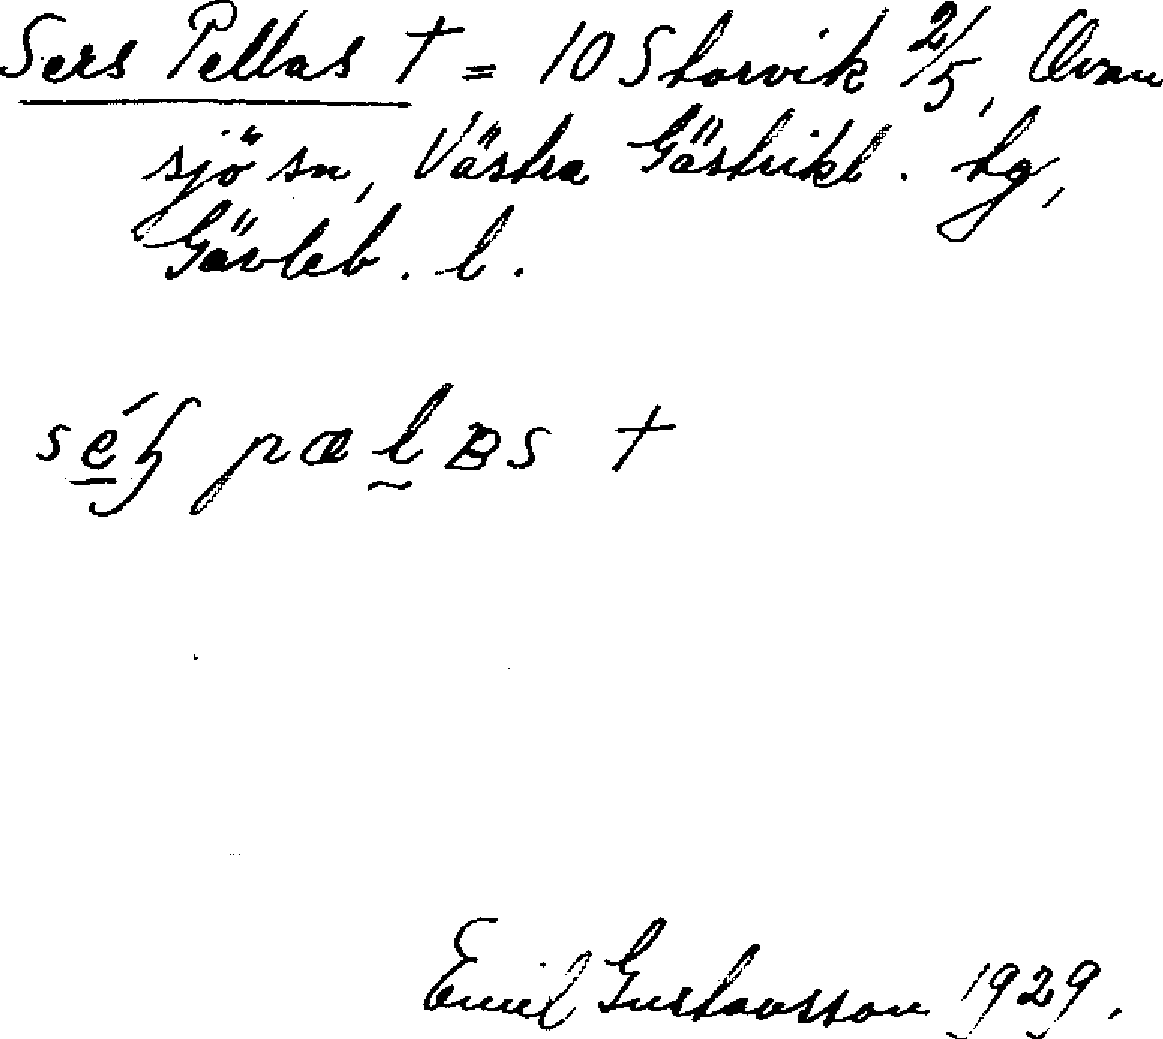 Sers Pellas † = 10 Storvik 2/5, Ovan
sjö sn, Västra Gästrikl. tg,
Gävleb. l.
Emil Gustavsson 1929.